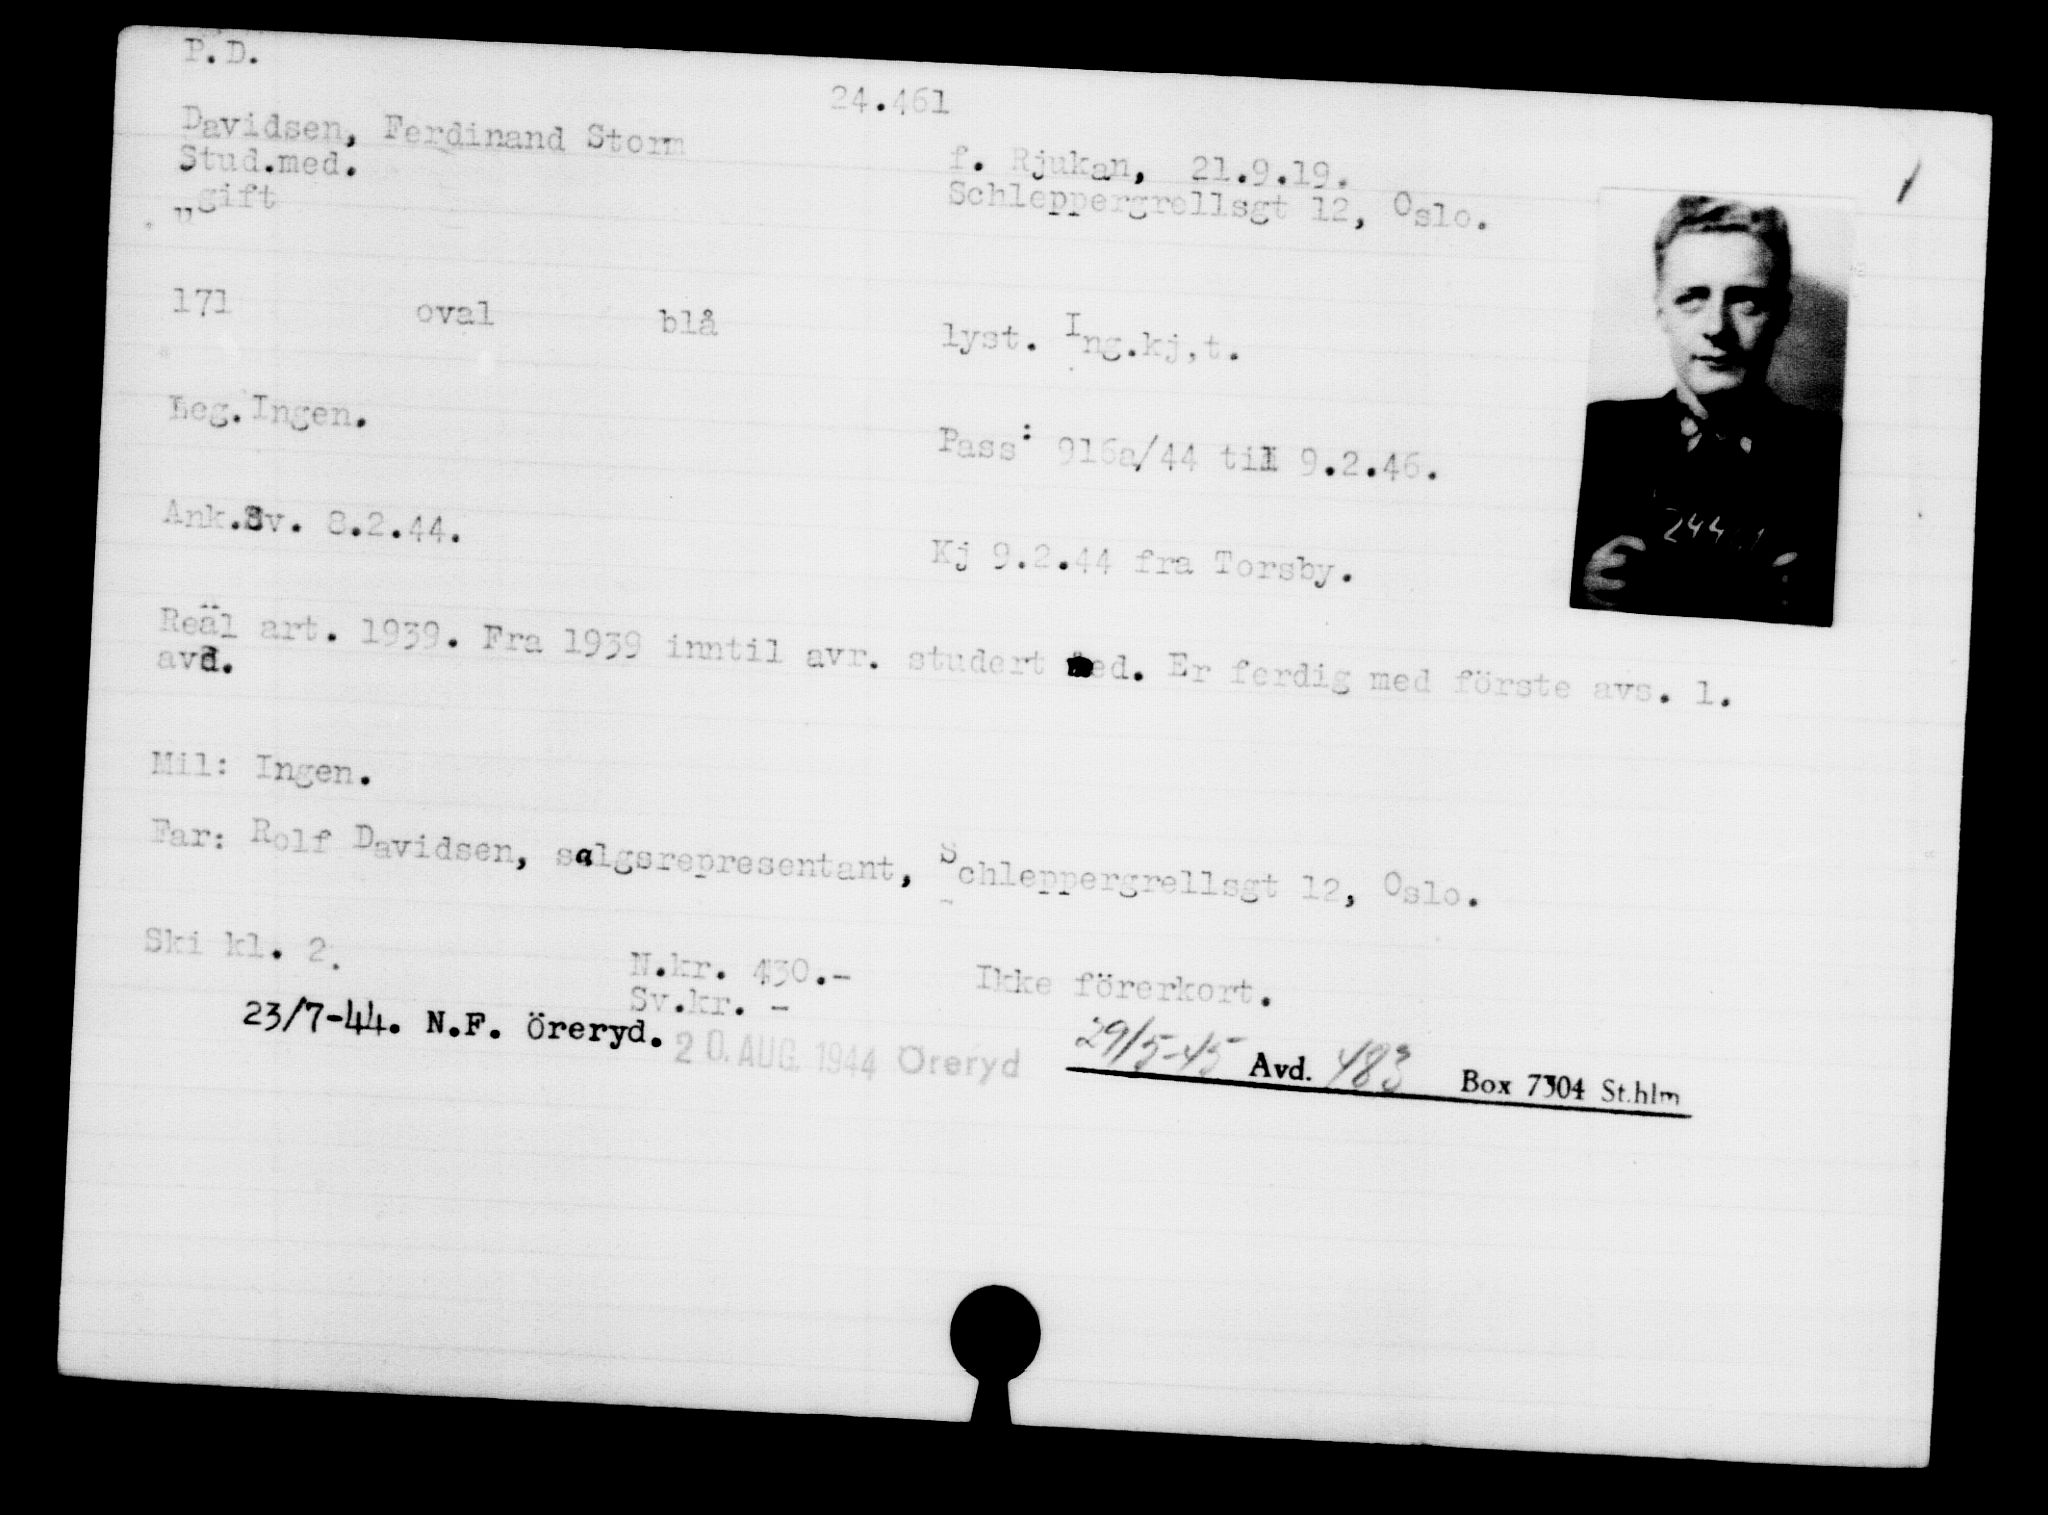 P.D.
24.461
Davidsen, Ferdinand Storm
f. Rjukan, 21.9.19.
Stud.med.
Schleppergrellsgt 12, Oslo.
„gift
171 oval blå lyst. Ing.kj,t.
Leg. Ingen.
Pass: 916a/44 till 9.2.46.
Ank.Sv. 8.2.44.
Kj 9.2.44 fra Torsby.
Reäl art. 1939. Fra 1939 inntil avr. studert med. Er ferdig med förste avs. 1.
avd.
Mil: Ingen.
Far: Rolf Davidsen, salgsrepresentant, Schleppergrellsgt 12, Oslo.
Ski kl. 2.
N.kr. 430.-
Ikke förerkort.
Sv.kr. -
23/7-44. N.F. Öreryd.
20. AUG. 1944 Öreryd
29/5-45 Avd. 483 Box 7304 St.hlm